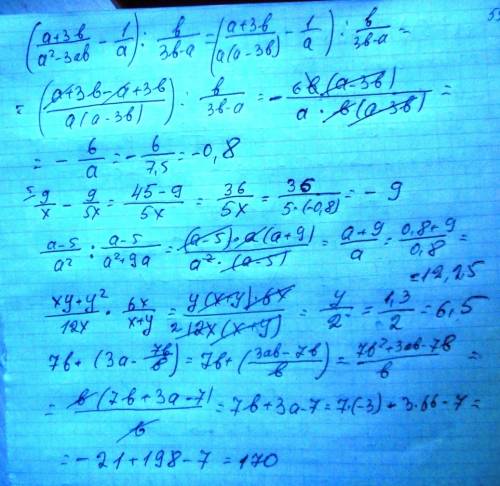 ((a+3b)/(a²-3ab) - 1/a) : b/(3b-a) = ((a+3b)/(a(a-3b)) - 1/a) : b/(3b-a) =
= ((a+3b-a+3b)/(a(a-3b))) : b/(3b-a) = - (6b(a-3b))/(a·b(a-3b)) =
= - 6/a = - 6/7,5 = -0,8
9/x - 9/5x = (45-9)/5x = 36/5x = 36/(5·(-0,8)) = -9
(a-5)/a² : (a-5)/(a²+9a) = ((a-5)·a(a+9))/(a²·(a-5)) = (a+9)/a = (0,8+9)/0,8 =
=12,25
(xy+y²)/12x · 6x/(x+y) = (y(x+y)·6x)/(2 12x(x+y)) = y/2 = 1,3/2 = 6,5
7b + (3a - 7b/b) = 7b + ((3ab-7b)/b) = (7b²+3ab-7b)/b =
= b(7b+3a-7)/b = 7b+3a-7 = 7·(-3)+3·66-7=
= -21+198-7 = 170